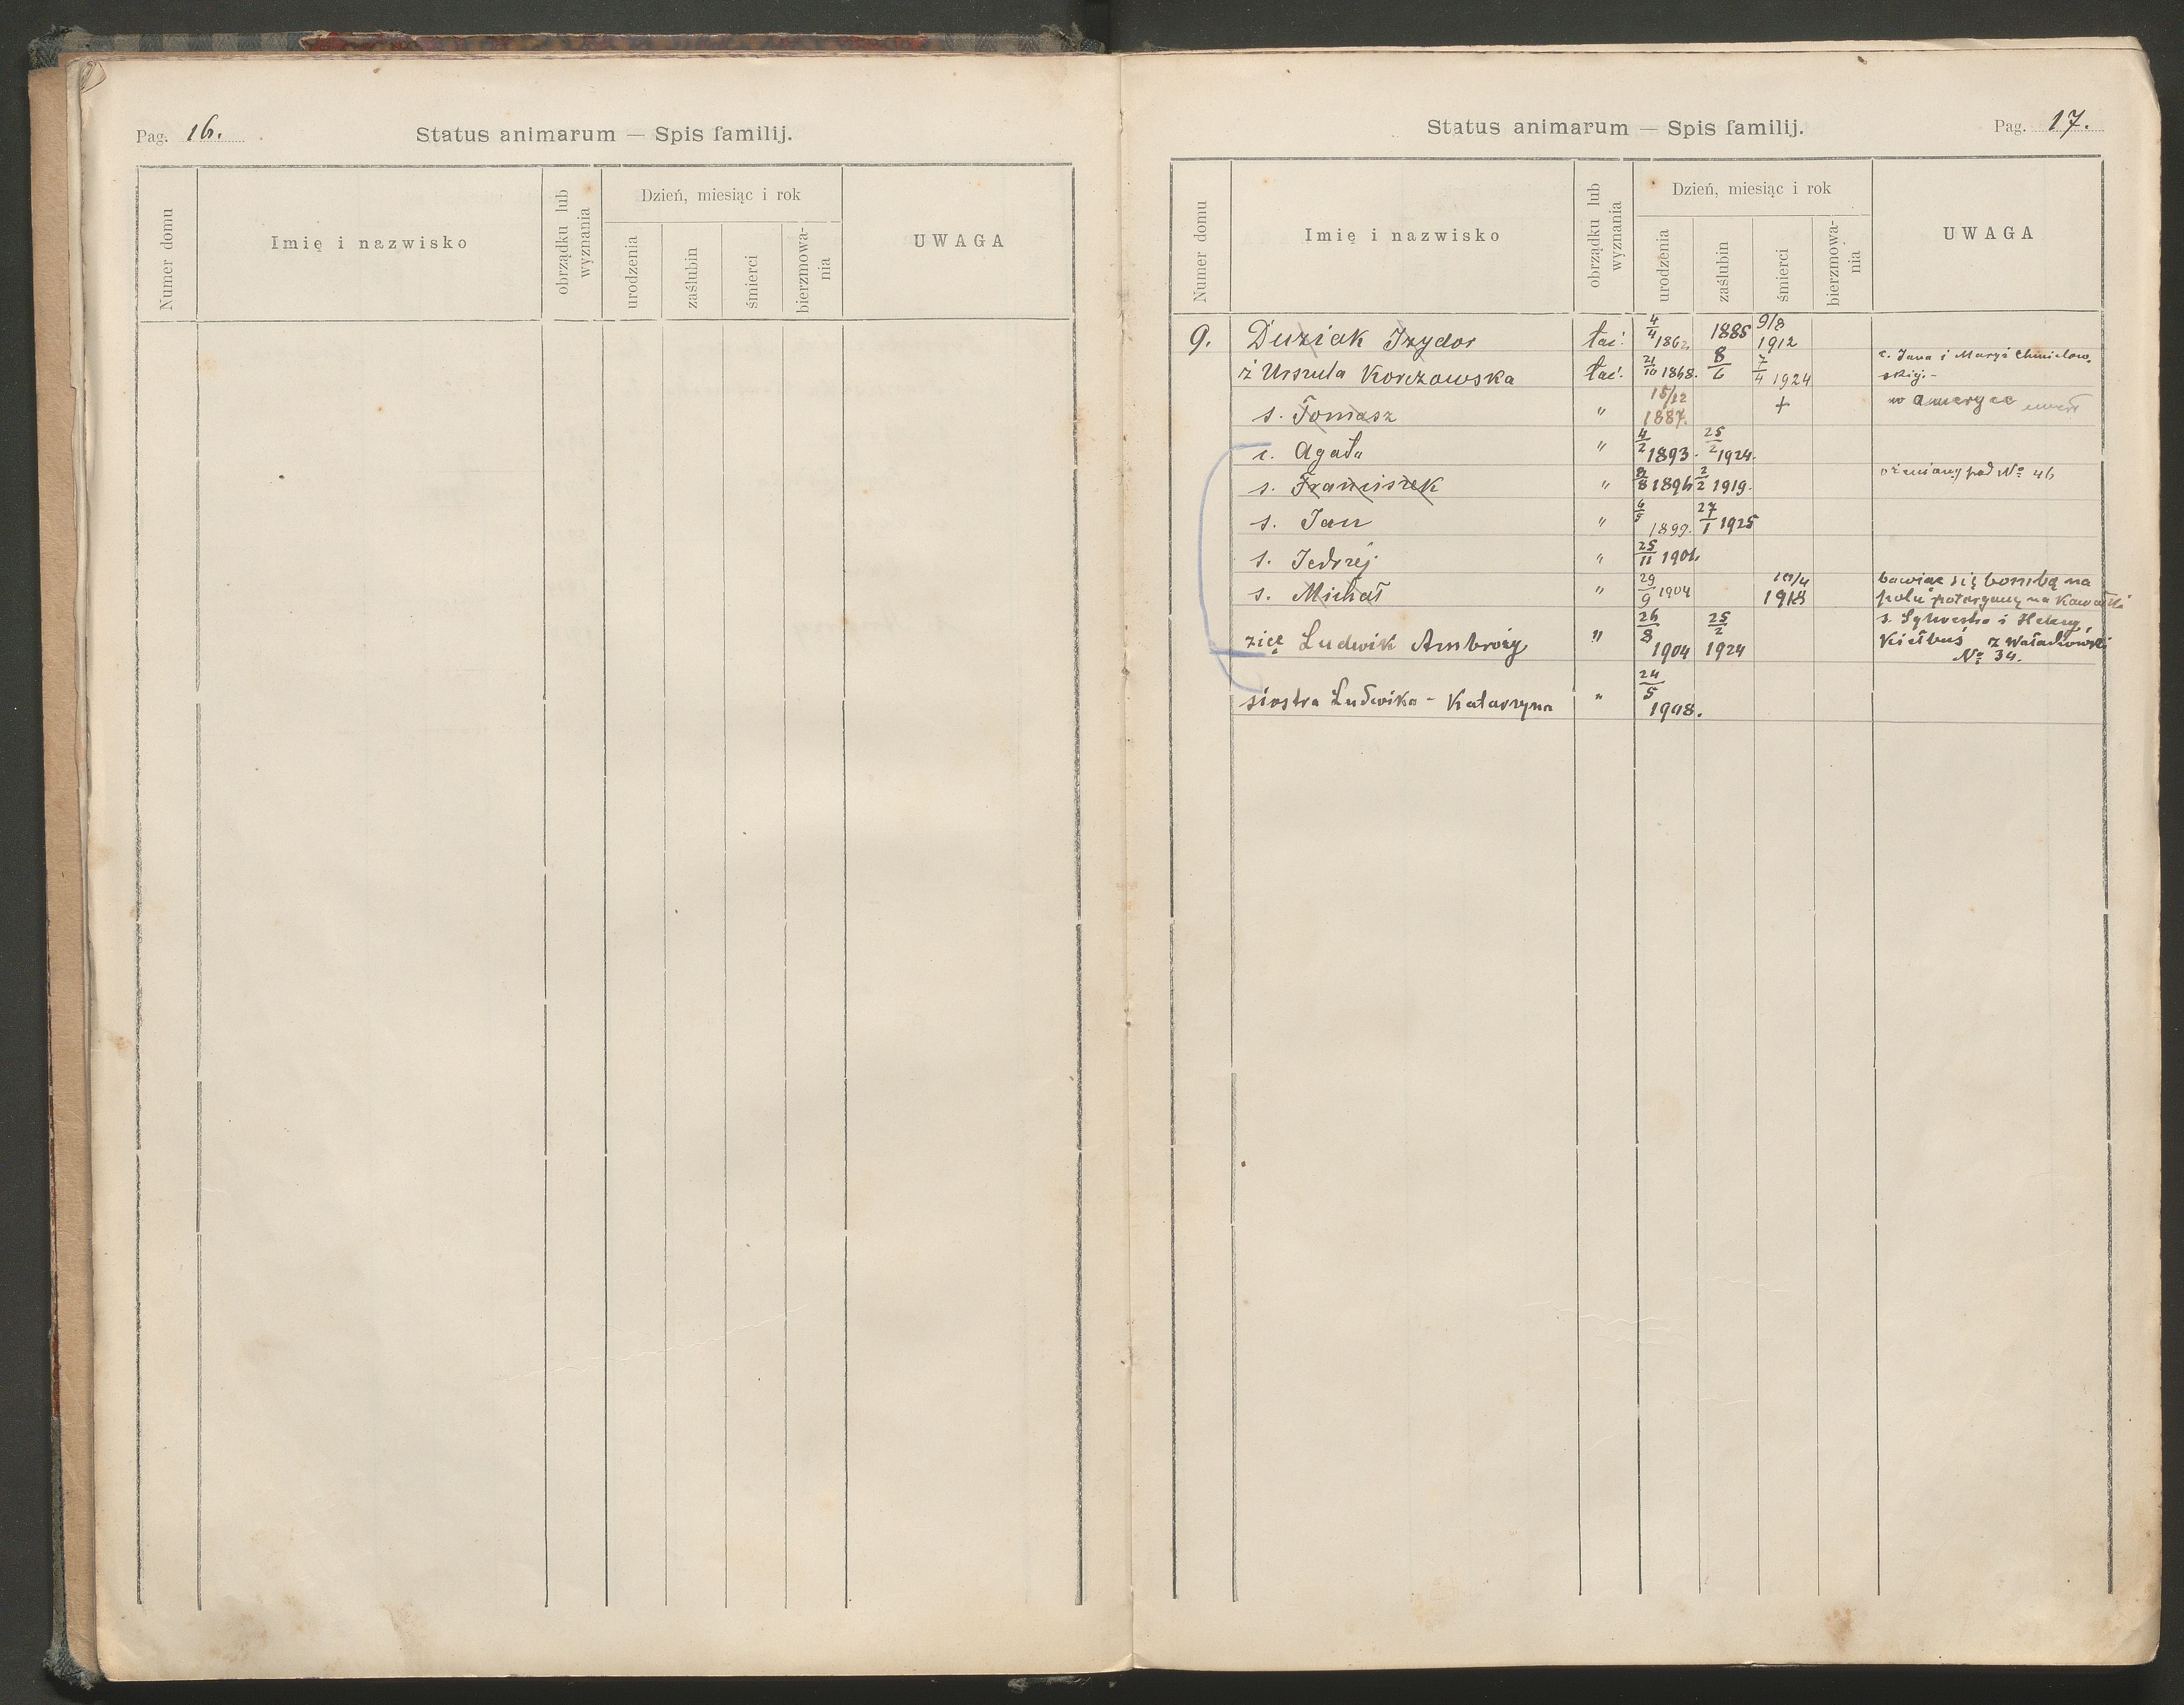 Pag. 16.
Status animarum — Spis familij.
Numer domu
Imię i nazwisko
obrządku lub wyznania
Dzień, miesiąc i rok
urodzenia
zaślubin
śmierci
bierzmowa-
nia
UWAGA
Status animarum — Spis familij.
Pag. 17.
Numer domu
Imię i nazwisko
obrządku lub wyznania
Dzień, miesiąc i rok
urodzenia
zaślubin
śmierci
bierzmowa-
nia
UWAGA
9. Duziak Izydor łać. 4/4 1862 1885 9/8 1912
ż Urszula Korczowska łać. 21/10 1868. 8/6 7/4 1924 c. Jana i Maryi Chmielow.
skiej.-
s. Tomasz " 15/12 1887. + w Ameryce umarł
c. Agata " 4/2 1893. 25/2 1924.
s. Franciszek " 8/8 1896 2/2 1919. ożeniony pod No 46
s. Jan " 6/5 1899. 27/1 1925
s. Jędrzej " 25/11 1901.
s. Michał " 29/9 1904 1918 bawiąc się bombą na
polu potargany na kawałki
zięć Ludwik Ambroży " 26/8 1904 25/2 1924 s. Sylwestra i Heleny
Kiełbus z
No 34.
siostra Ludwika - Katarzyna " 24/5 1908.